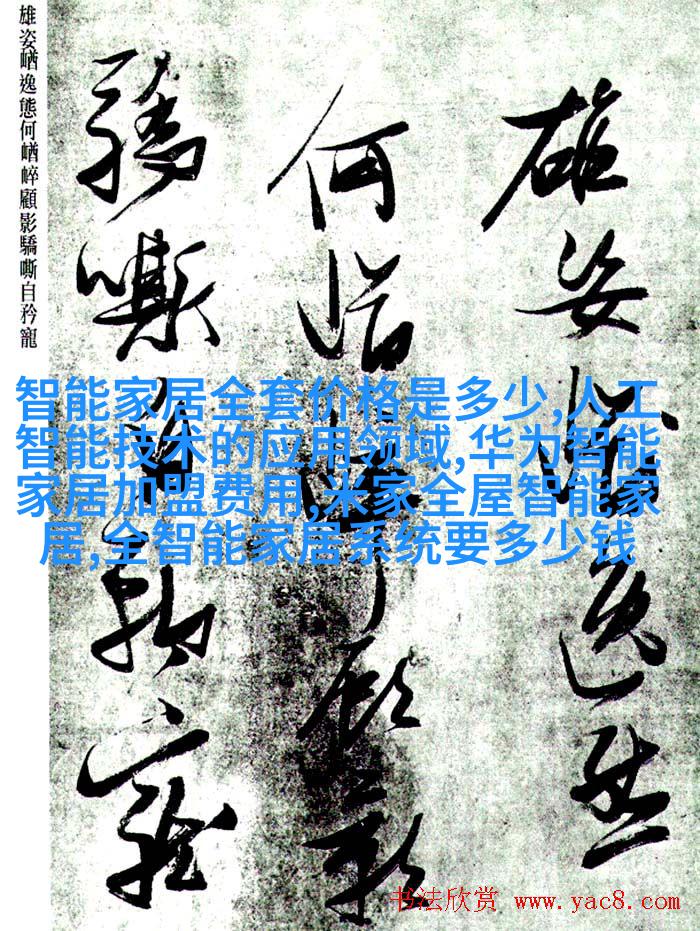 雄姿崷逸態
何崷崒顧影
驕嘶自矜寵
雄姿崷逸態何崷崒顧影驕嘶自矜寵
智能家居全套价格是多少,人工
智能技术的应用领域,华为智能
家居加盟费用,米家全屋智能家
居,全智能家居系统要多少钱
书法欣赏 www.yac8.com